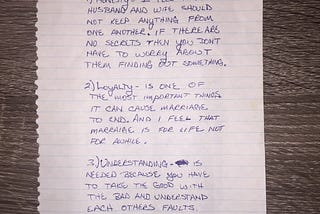 HUSBAND AND WIFE SHOULD
NOT KEEP ANYTHING FROM
ONE ANOTHER. IF THERE ARE
NO SECRETS THEN YOU DON'T
HAVE TO WORRY ABOUT
THEM FINDING OUT SOMETHING.
2) LOYALTY - IS ONE OF
THE MOST IMPORTANT THINGS
IT CAN CAUSE MARRIAGE
TO END. AND I FEEL THAT
MARRAIGE IS FOR LIFE NOT
FOR AWHILE.
3) UNDERSTANDING - IS
NEEDED BECAUSE YOU HAVE
TO TAKE THE GOOD WITH
THE BAD AND UNDERSTAND
EACH OTHERS FAULTS.